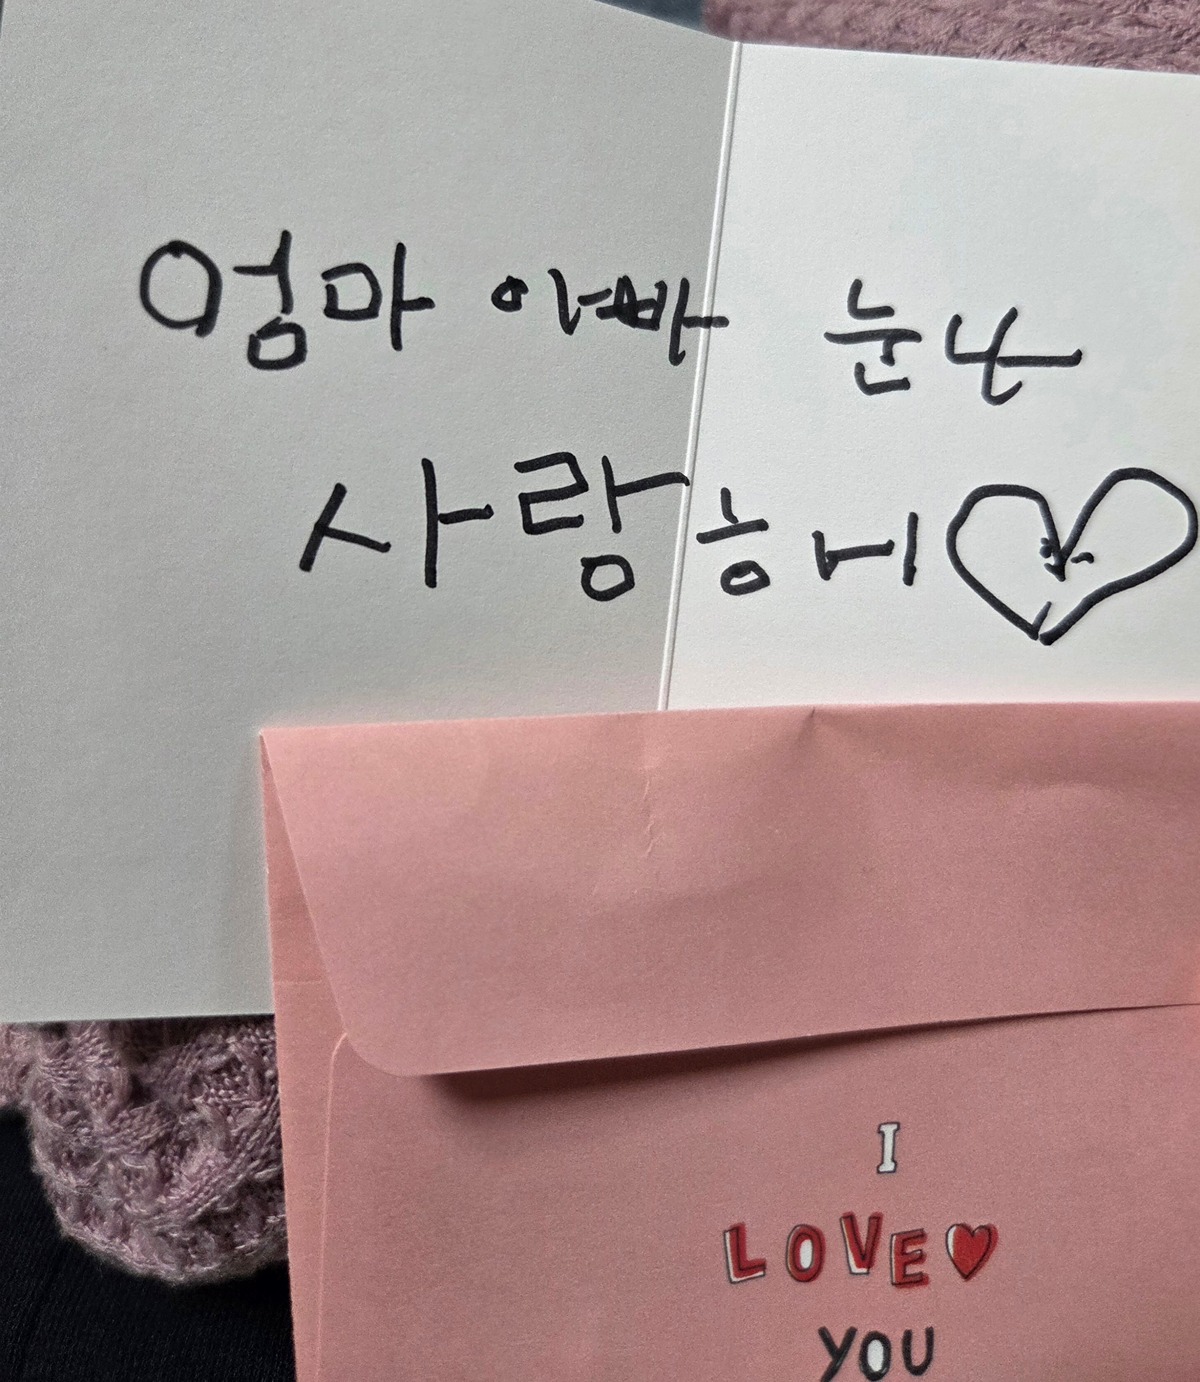 엄마 아빠 눈나
사랑흐ㅐ
I
LOVE
YOU